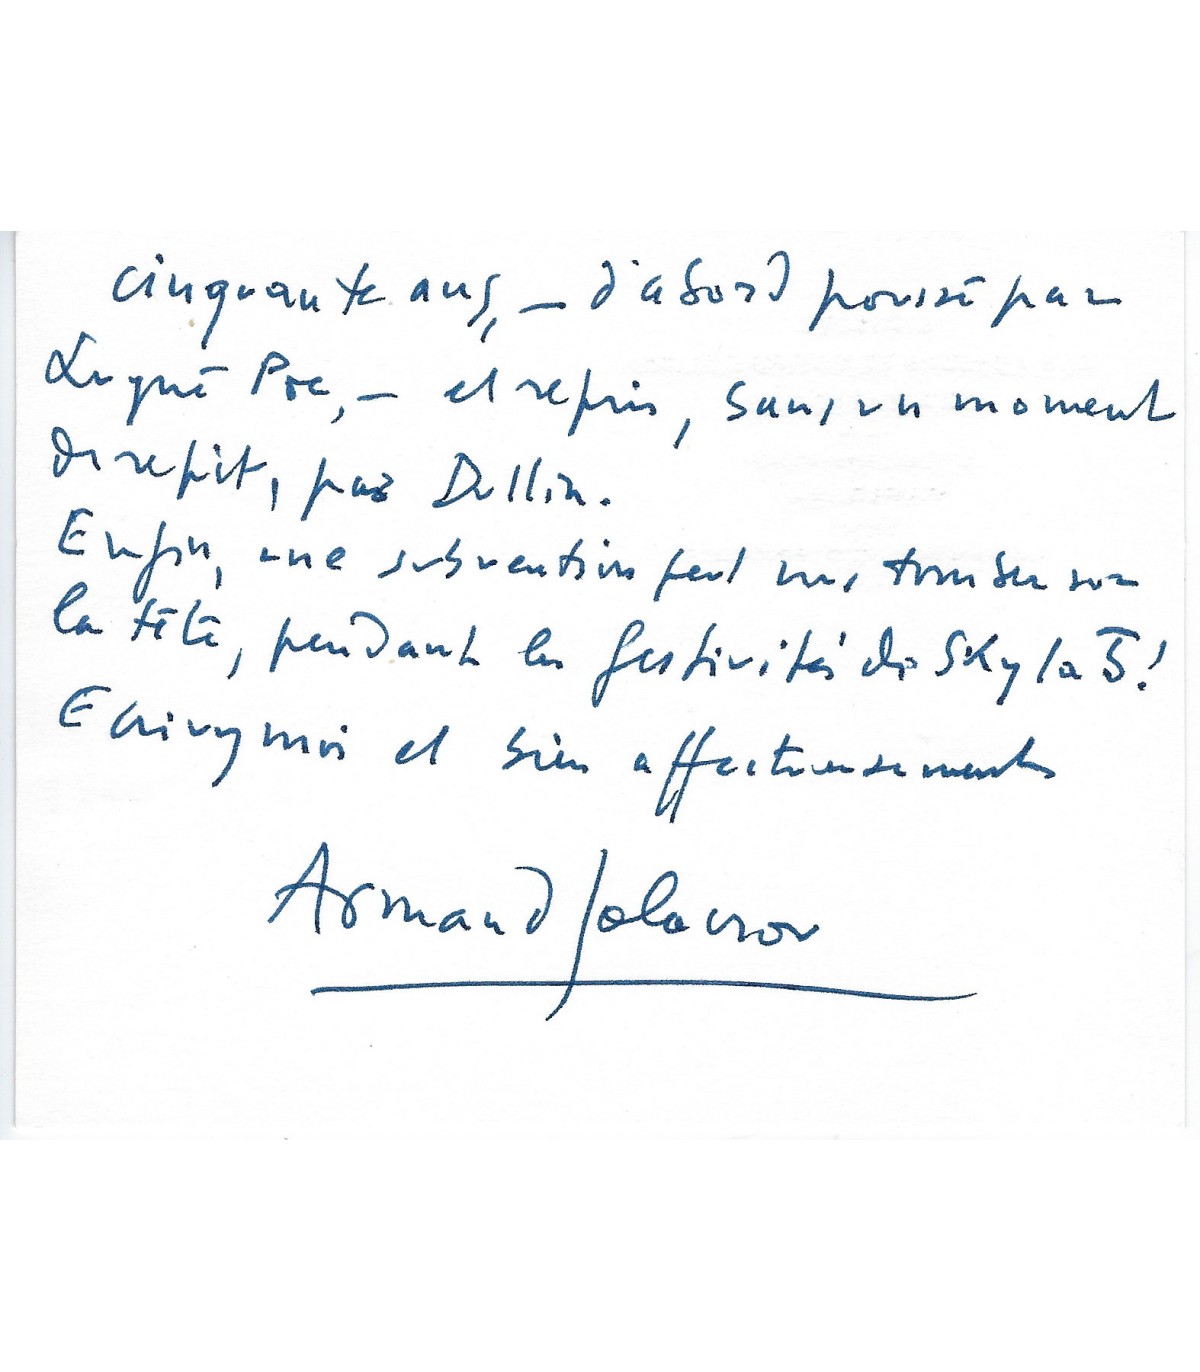 cinquante ans, — d'abord poussé par
Lugné Poe, — et repris, sans un moment
de répit, par Dullin.
Enfin, une subvention peut vous tomber sur
la tête, pendant les festivités de
Ecrivez moi et bien affectueusement
Armand Salacrou